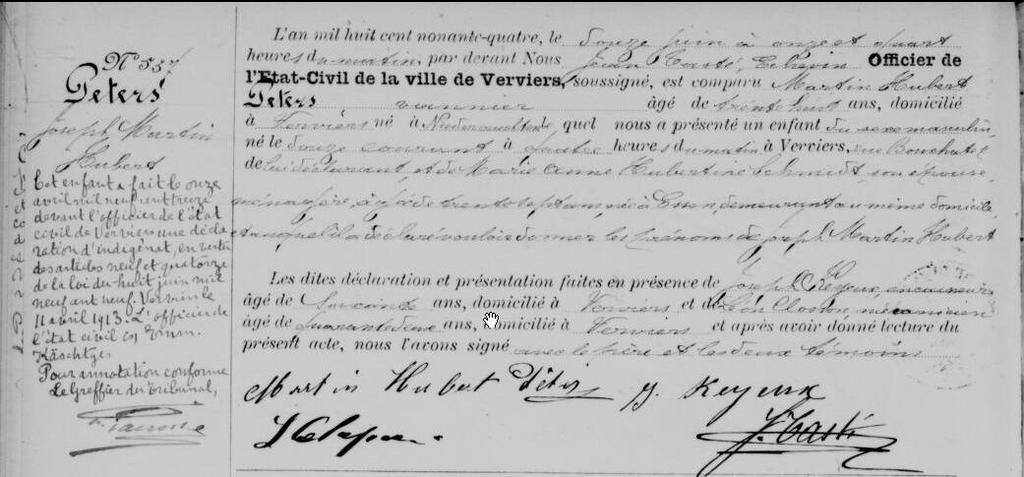 Nº 557
Peters
Joseph Martin
Hubert
Cet enfant a fait le onze
avril mil neuf cent treize
devant l'officier de l'état
civil de Verviers une décla
ration d'indigénat, en vertu
des articles neuf et quatorze
de la loi du huit juin mil
neuf cent neuf. Verviers le
11 avril 1913. L'officier de
l'état civil
Käschtges
Pour annotation conforme
Le Greffier du Tribunal,
L'an mil huit cent nonante-quatre, le douze juin à onze et quart
heures du matin, par devant Nous Jean Tasté, Echevin Officier de
l'Etat-Civil de la ville de Verviers, soussigné, est comparu Martin Hubert
Peters vannier âgé de trente huit ans, domicilié
à Verviers né à lequel nous a présenté un enfant du sexe masculin,
né le douze courant à quatre heures du matin à Verviers, rue
de lui déclarant et de Marie Anne Hubertine Schmidt, son épouse,
ménagère, âgée de trente sept ans, née à Essen, demeurant au même domicile
et auquel il a déclaré vouloir donner les prénoms de Joseph Martin Hubert
Les dites déclaration et présentation faites en présence de Joseph
âgé de soixante ans, domicilié à Verviers et de Léon mécanicien
âgé de quarante deux ans, domicilié à Verviers et après avoir donné lecture du
présent acte, nous l'avons signé avec le père et les deux témoins
Martin Hubert Peters J. Keyeux
J. Tasté